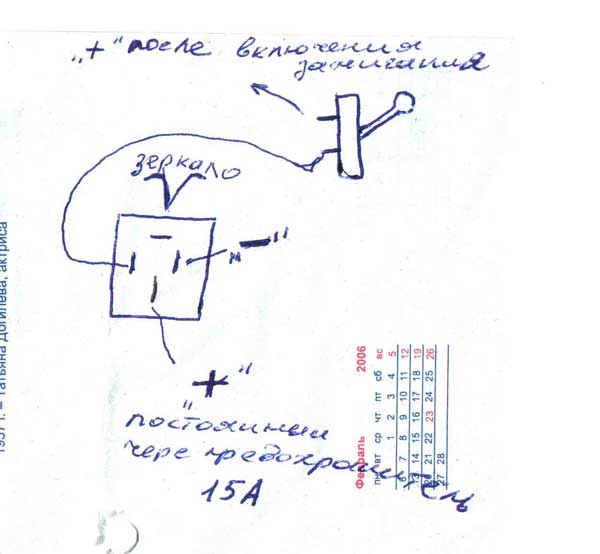 „+“ после включения
зажигания
зеркало
„—“
„+“
постоянный
чере предохранитель
15А
1957 г. – Татьяна Догилева, актриса
Февраль 2006
пн вт ср чт пт сб вс
1 2 3 4 5
6 7 8 9 10 11 12
13 14 15 16 17 18 19
20 21 22 23 24 25 26
27 28